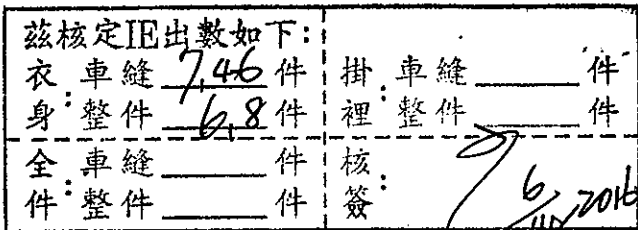 茲核定IE出數如下:
衣身: 車縫 7.46 件
整件 6.8 件
掛裡: 車縫 件
整件 件
全件: 車縫 件
整件 件
核簽: 6/ 2016